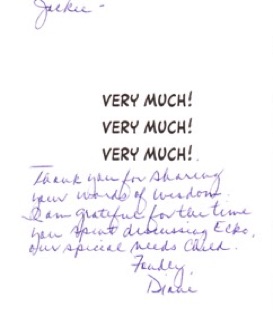 Jackie -
VERY MUCH!
VERY MUCH!
VERY MUCH!
Thank you for sharing
your words of wisdom.
I am grateful for the time
you spent discussing Ecko,
our special needs child.
Fondly,
Diane